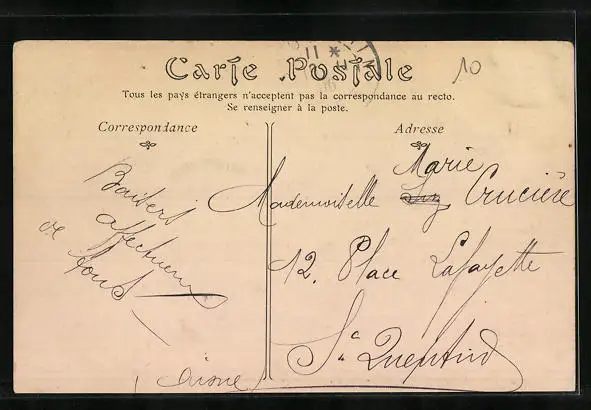 Carte Postale
10
Tous les pays étrangers n'acceptent pas la correspondance au recto.
Se renseigner à la poste.
Correspondance
Adresse
Baisers
affectueux
de tous
Marie
Mademoiselle Crucière
12. Place Lafayette
St Quentin
(Aisne)